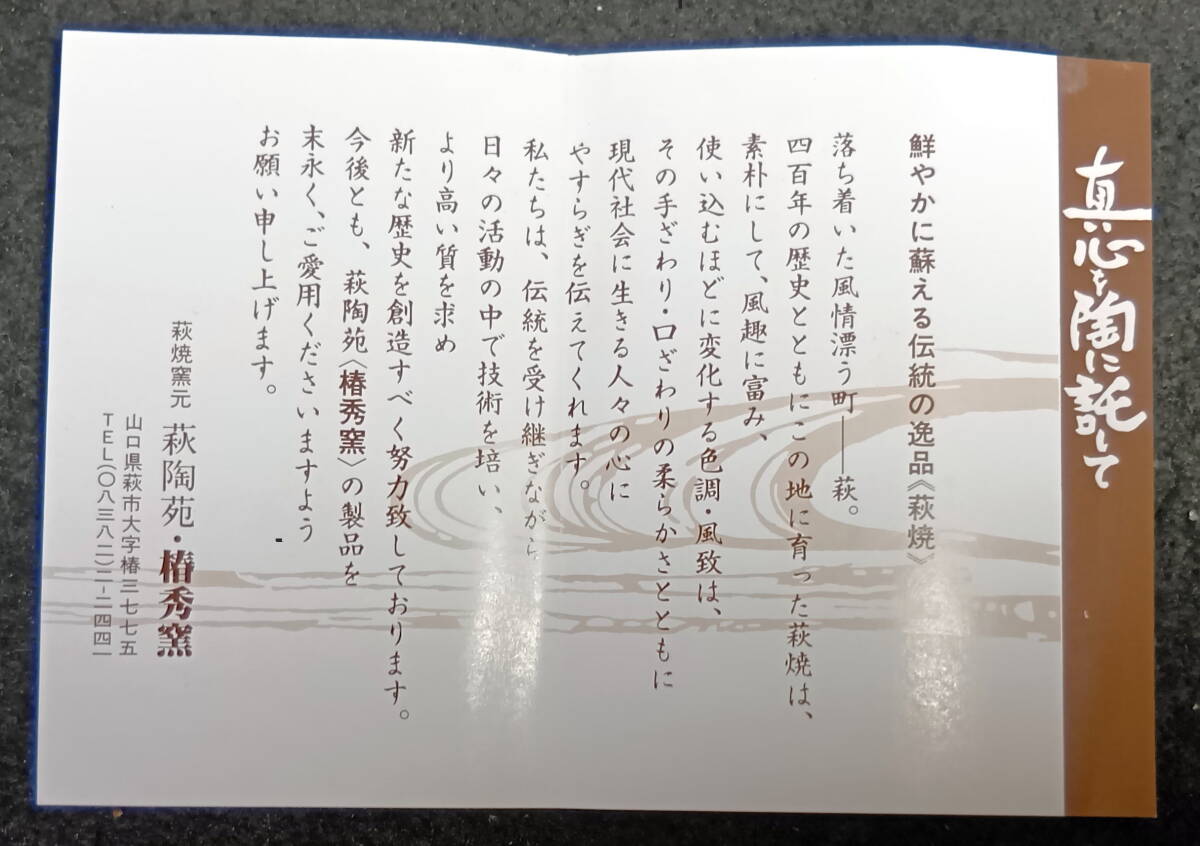 真心を陶に託して
鮮やかに蘇える伝統の逸品《萩焼》
落ち着いた風情漂う町――萩。
四百年の歴史とともにこの地に育った萩焼は、
素朴にして、風趣に富み、
使い込むほどに変化する色調・風致は、
その手ざわり・口ざわりの柔らかさとともに
現代社会に生きる人々の心に
やすらぎを伝えてくれます。
私たちは、伝統を受け継ぎながら
日々の活動の中で技術を培い、
より高い質を求め
新たな歴史を創造すべく努力致しております。
今後とも、萩陶苑〈椿秀窯〉の製品を
末永く、ご愛用くださいますよう
お願い申し上げます。
萩焼窯元 萩陶苑・椿秀窯
山口県萩市大字椿三七七五
TEL(〇八三八二)二-二四四一